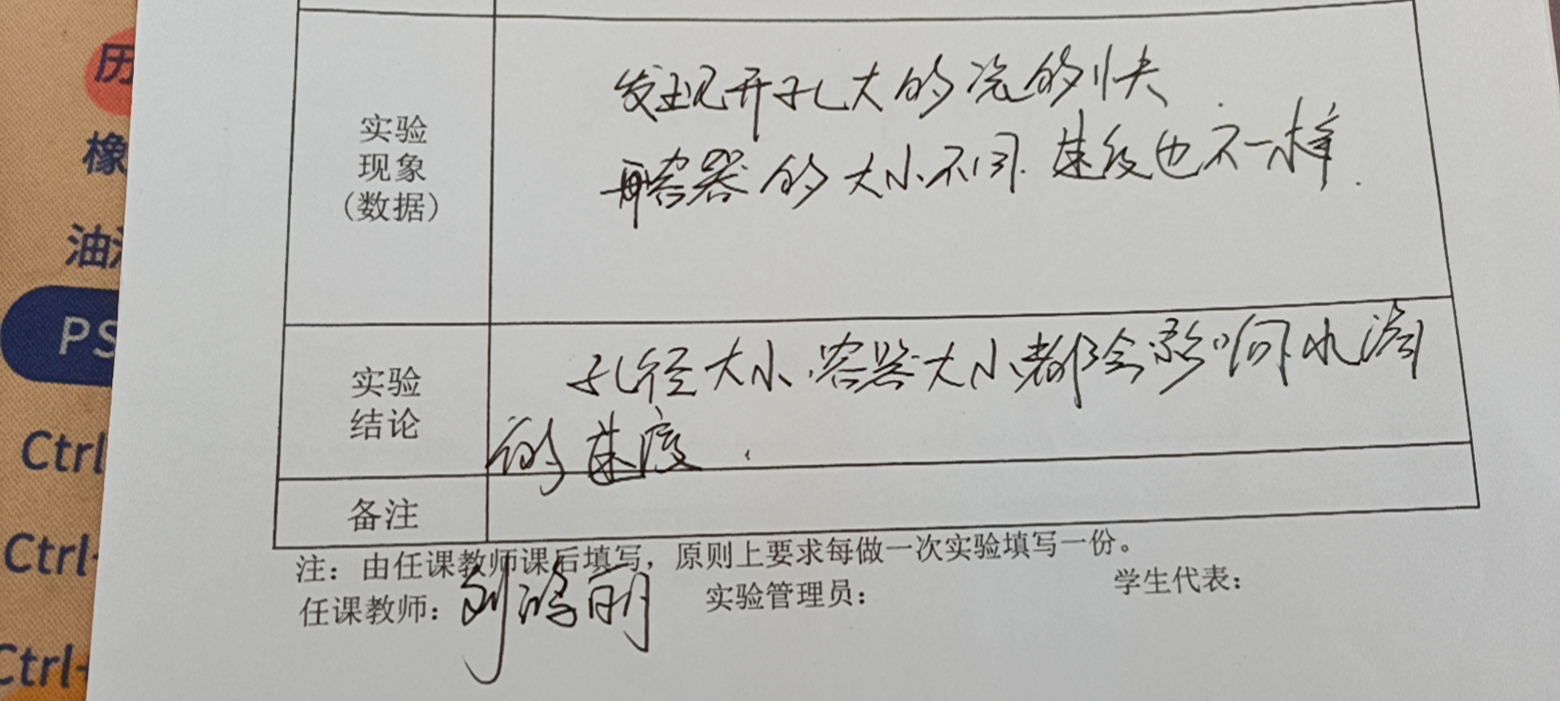 历
橡
油
PS
Ctrl
Ctrl-
Ctrl-
实验
现象
(数据)
发现开孔大的流的快
容器的大小不同.速度也不一样.
实验
结论
孔径大小、容器大小都会影响水滴
的速度.
备注
注：由任课教师课后填写，原则上要求每做一次实验填写一份。
任课教师：刘鸿丽 实验管理员： 学生代表：